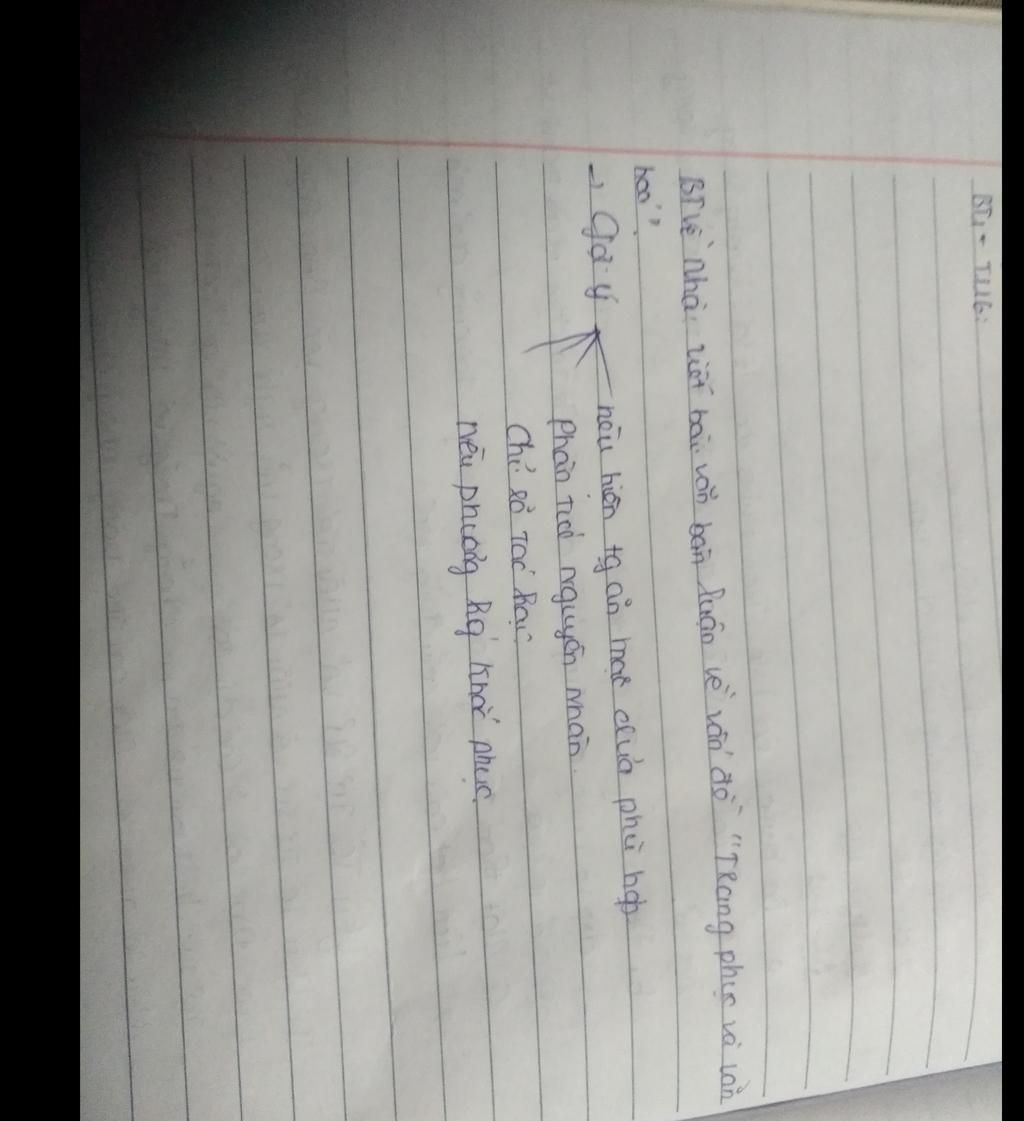 BT1 - T116:
BT về nhà: viết bài văn bàn luận về vấn đề "Trang phục và văn
hoá"
→ Gợi ý nêu hiện tg ăn mặc chưa phù hợp
phân tích nguyên nhân.
Chỉ rõ tác hại
nêu phương hg' khắc phục